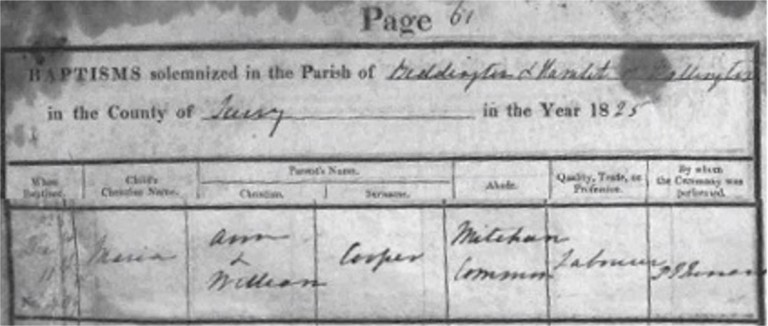 Page 61
BAPTISMS solemnized in the Parish of Beddington & Hamlet of Wallington
in the County of Surry in the Year 1825
When Baptized. Child's Christian Name. Parent's Name. Christian. Surname. Abode. Quality, Trade, or Profession. By whom the Ceremony was performed.
Maria Ann & William Cooper Mitcham Common Labourer